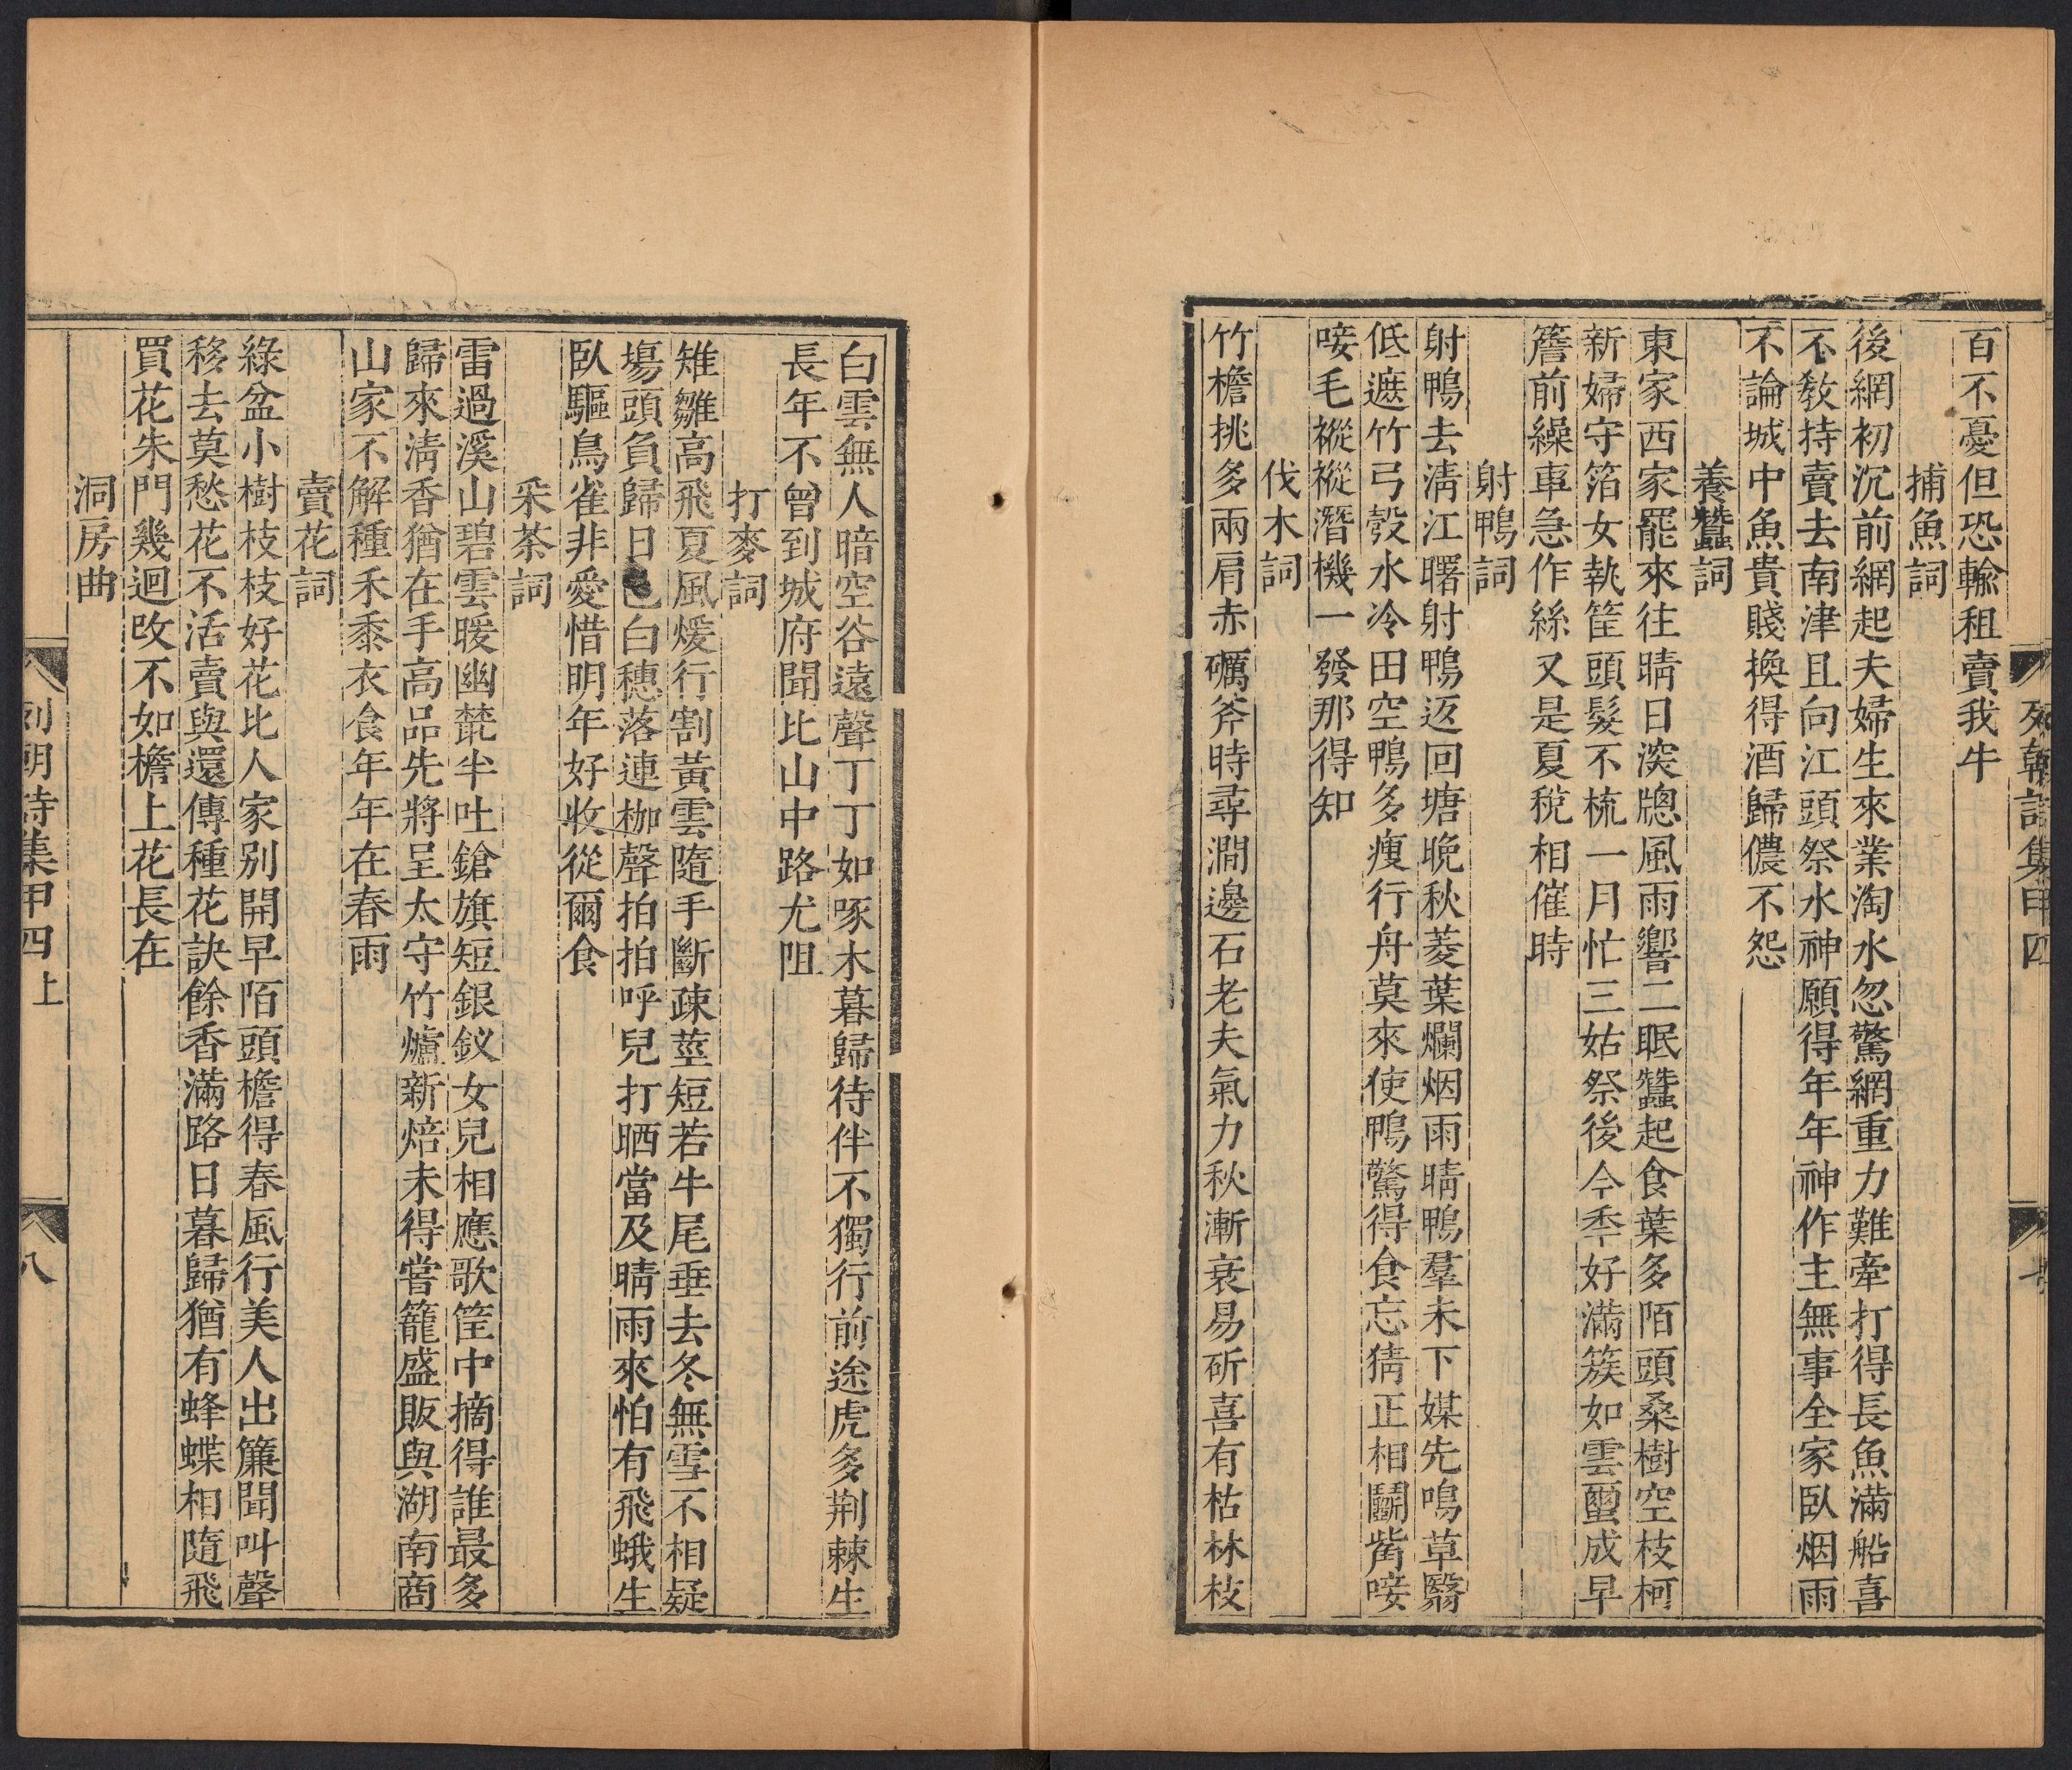 列朝詩集甲四
七
百不憂但恐輸租賣我牛
捕魚詞
後網初沉前網起夫婦生來業淘水忽驚網重力難牽打得長魚滿船喜
不教持賣去南津且向江頭祭水神願得年年神作主無事全家臥烟雨
不論城中魚貴賤換得酒歸儂不怨
養蠶詞
東家西家罷來往晴日深牕風雨響二眠蠶起食葉多陌頭桑樹空枝柯
新婦守箔女執筐頭髮不梳一月忙三姑祭後今秊好滿簇如雲蠒成早
簷前繰車急作絲又是夏稅相催時
射鴨詞
射鴨去清江曙射鴨返回塘晚秋菱葉爛烟雨晴鴨羣未下媒先鳴草翳
低遮竹弓彀水冷田空鴨多瘦行舟莫來使鴨驚得食忘猜正相鬭觜唼
唼毛褷褷潛機一發那得知
伐木詞
竹檐挑多兩肩赤礪斧時尋澗邊石老夫氣力秋漸衰易斫喜有枯林枝
白雲無人暗空谷遠聲丁丁如啄木暮歸待伴不獨行前途虎多荆棘生
長年不曾到城府聞比山中路尤阻
打麥詞
雉雛高飛夏風煖行割黃雲隨手斷疎莖短若牛尾垂去冬無雪不相疑
塲頭負歸日色白穗落連枷聲拍拍呼兒打晒當及晴雨來怕有飛蛾生
臥驅鳥雀非愛惜明年好收從爾食
采茶詞
雷過溪山碧雲暖幽叢半吐鎗旗短銀釵女兒相應歌筐中摘得誰最多
歸來清香猶在手高品先將呈太守竹爐新焙未得嘗籠盛販與湖南商
山家不解種禾黍衣食年年在春雨
賣花詞
綠盆小樹枝枝好花比人家别開早陌頭檐得春風行美人出簾聞叫聲
移去莫愁花不活賣與還傳種花訣餘香滿路日暮歸猶有蜂蝶相隨飛
買花朱門幾迴改不如檐上花長在
洞房曲
列朝詩集甲四上
八